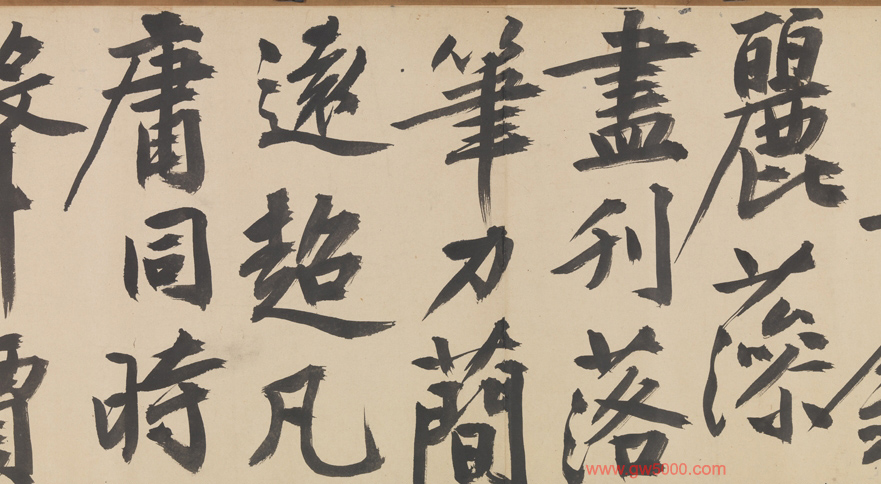 麗藻
盡刊落
筆力簡
遠超凡
庸同時
www.gw9000.com